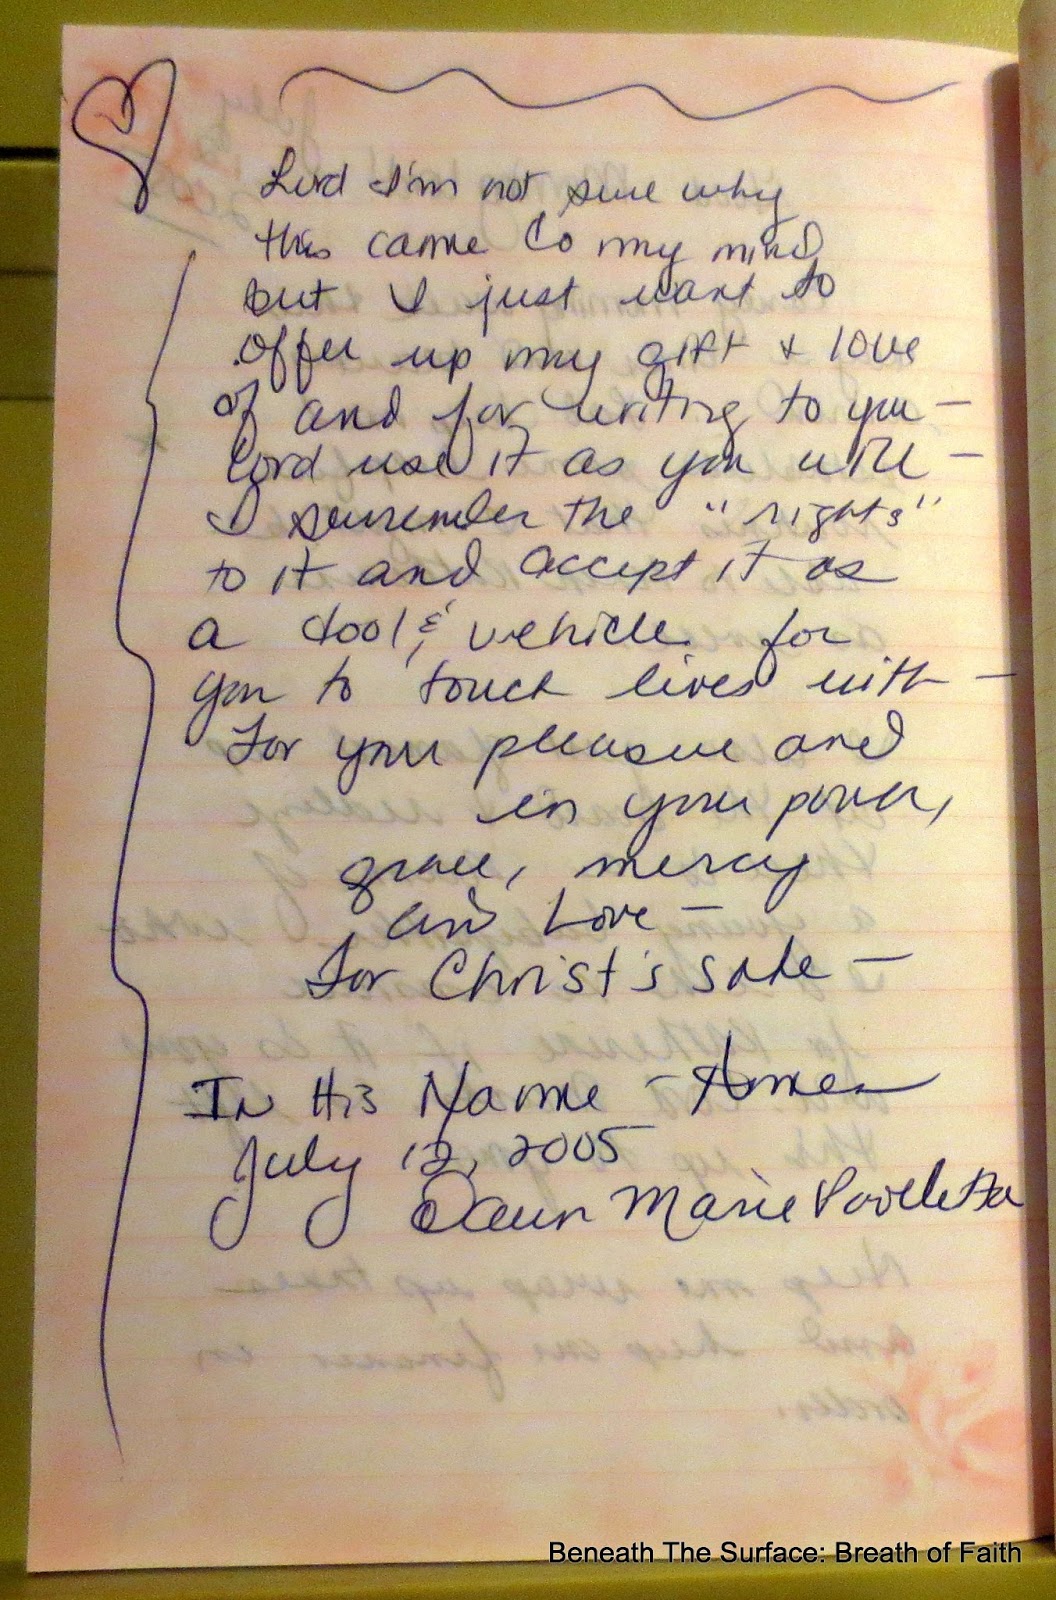 Lord I'm not sure why
this came to my mind
but I just want to
offer up my gift & love
of and for writing to you —
Lord use it as you will —
I surrender the "rights"
to it and accept it as
a tool & vehicle for
you to touch lives with —
For your pleasure and
in your power,
grace, mercy
and Love —
For Christ's sake —
In His Name - Amen
July 12, 2005
Dawn Marie
Beneath The Surface: Breath of Faith